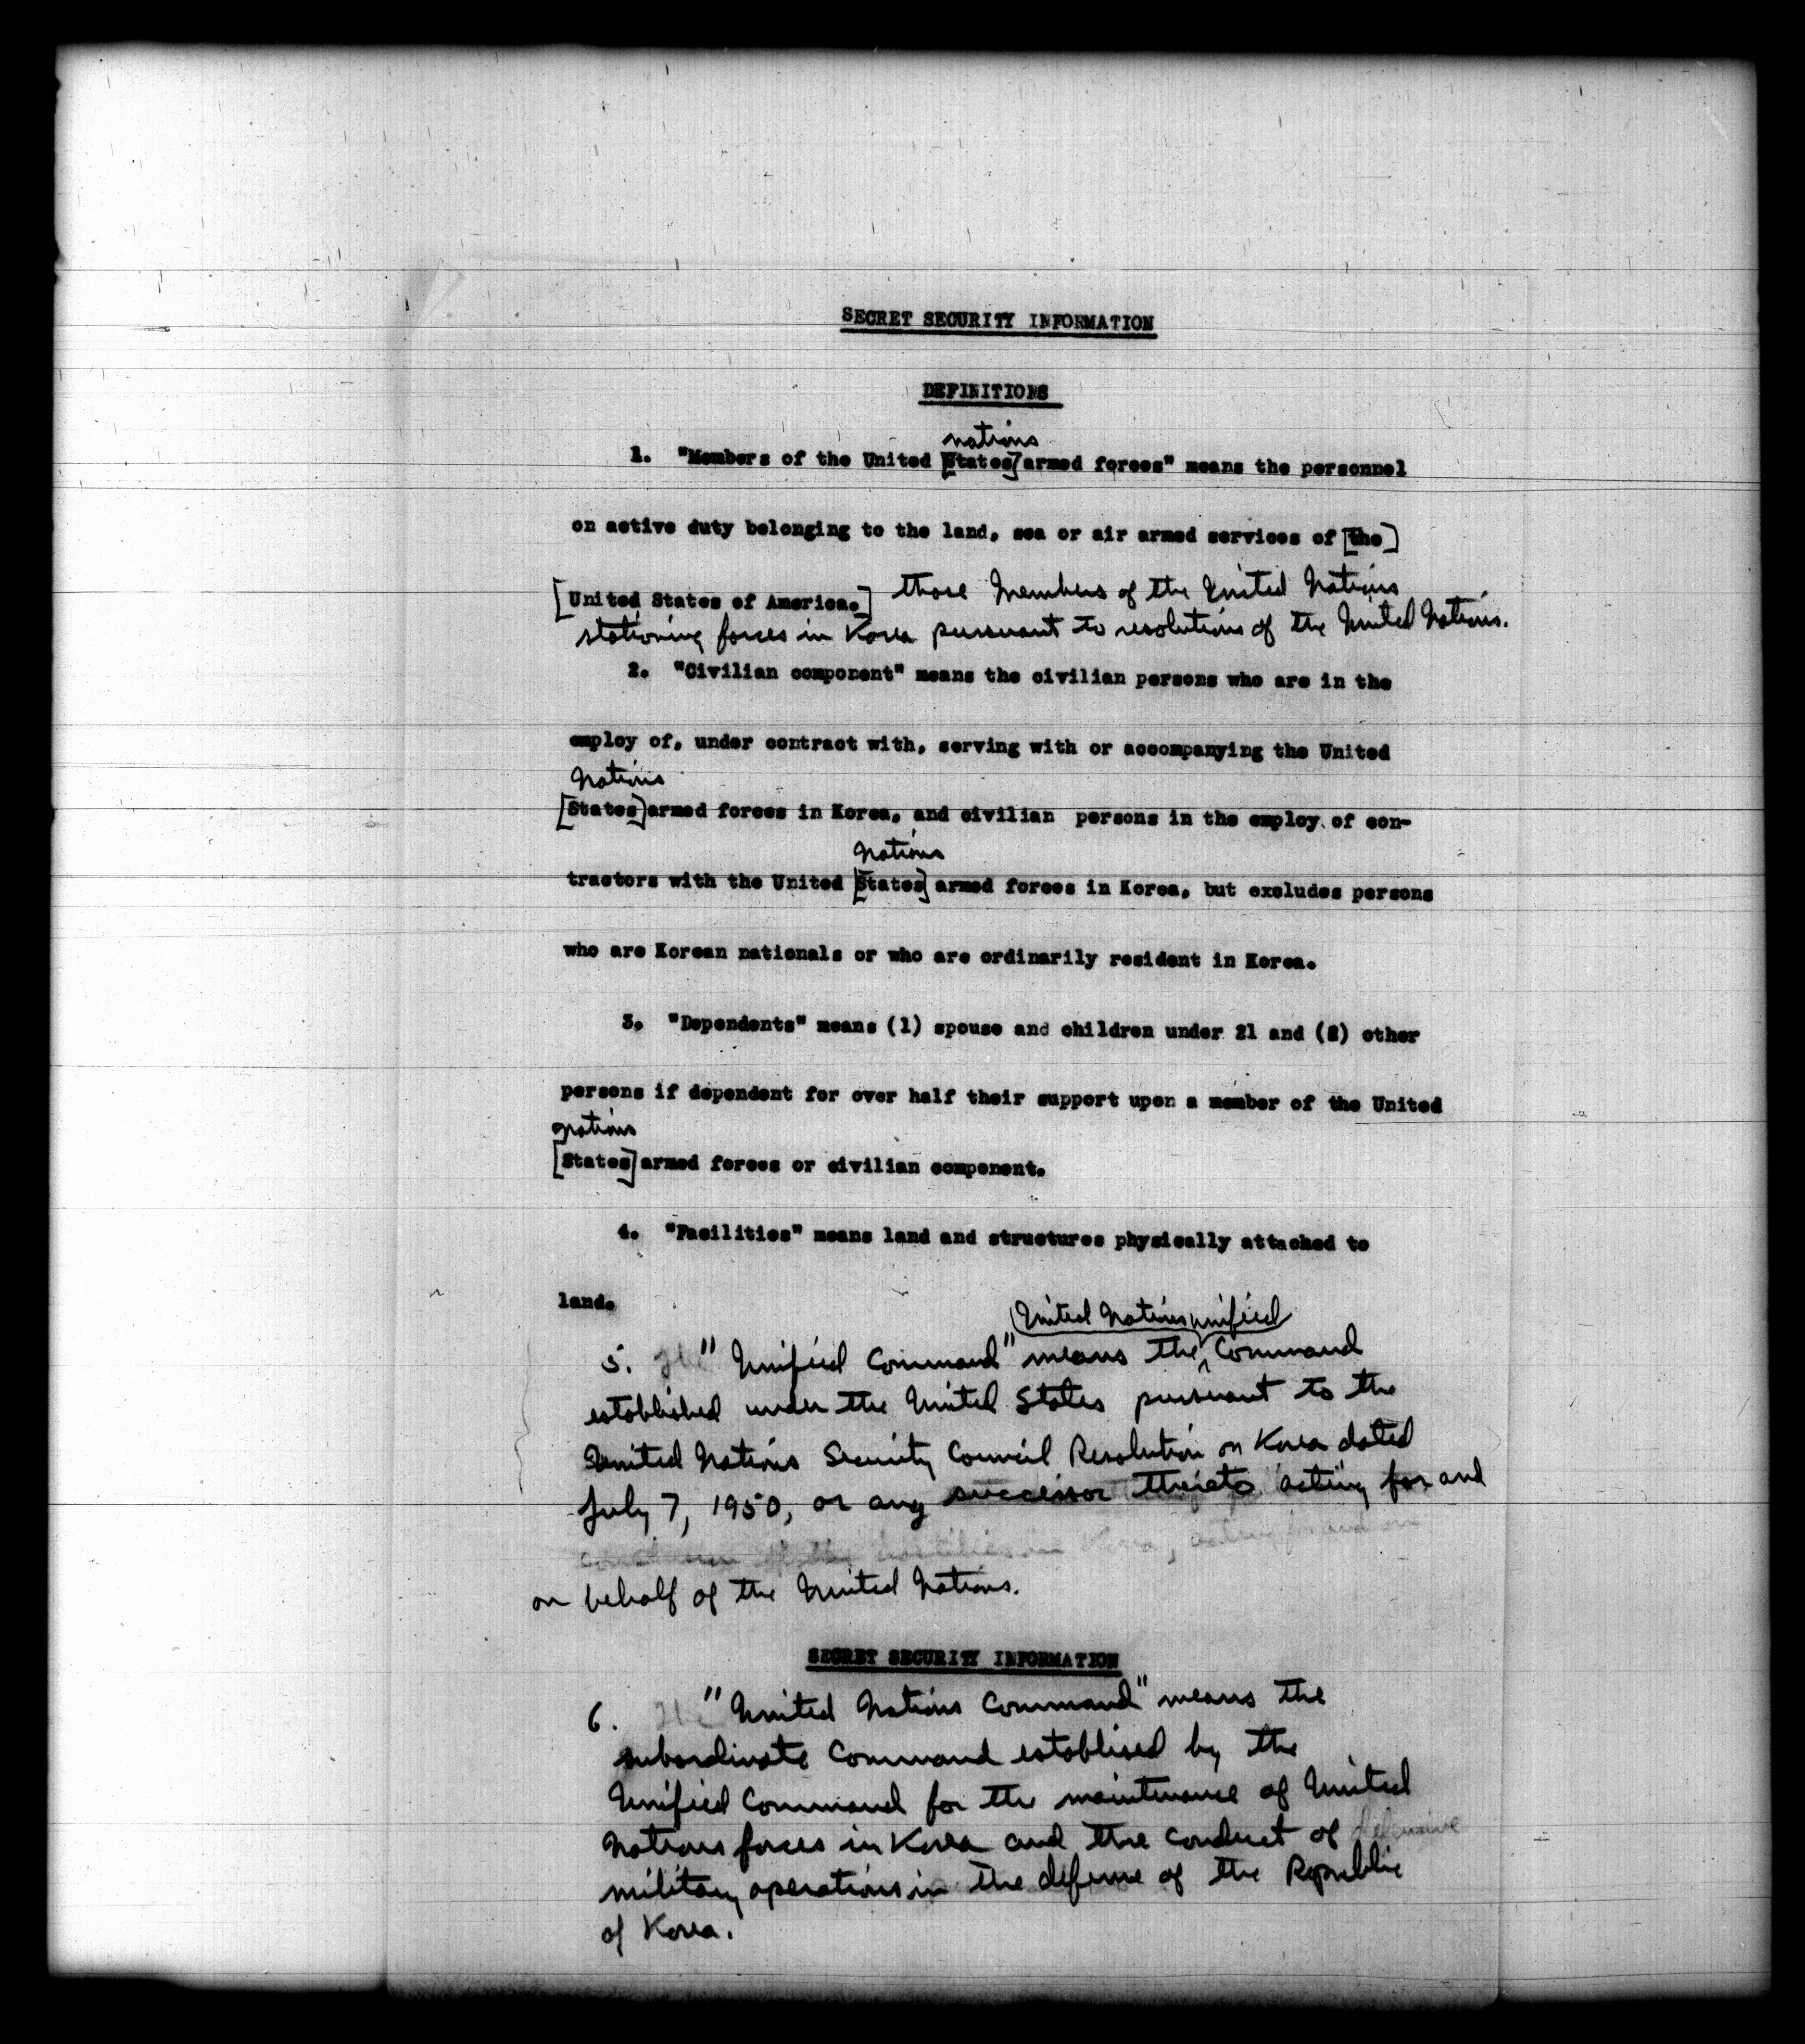 SECRET SECURITY INFORMATION
DEFINITIONS
nations
1. "Members of the United [States] armed forces" means the personnel
on active duty belonging to the land, sea or air armed services of [the]
[United States of America.] those Members of the United Nations
stationing forces in Korea pursuant to resolutions of the United Nations.
2. "Civilian component" means the civilian persons who are in the
employ of, under contract with, serving with or accompanying the United
Nations
[States] armed forces in Korea, and civilian persons in the employ of con-
Nations
tractors with the United [States] armed forces in Korea, but excludes persons
who are Korean nationals or who are ordinarily resident in Korea.
3. "Dependents" means (1) spouse and children under 21 and (2) other
persons if dependent for over half their support upon a member of the United
Nations
[States] armed forces or civilian component.
4. "Facilities" means land and structures physically attached to
land.
United Nations unified
5. "Unified Command" means the Command
established under the United States pursuant to the
United Nations Security Council Resolution on Korea dated
July 7, 1950, or any successor thereto acting for and
on behalf of the United Nations.
SECRET SECURITY INFORMATION
6. "United Nations Command" means the
subordinate Command establised by the
Unified Command for the maintenance of United
Nations forces in Korea and the conduct of
military operations in the defense of the Republic
of Korea.